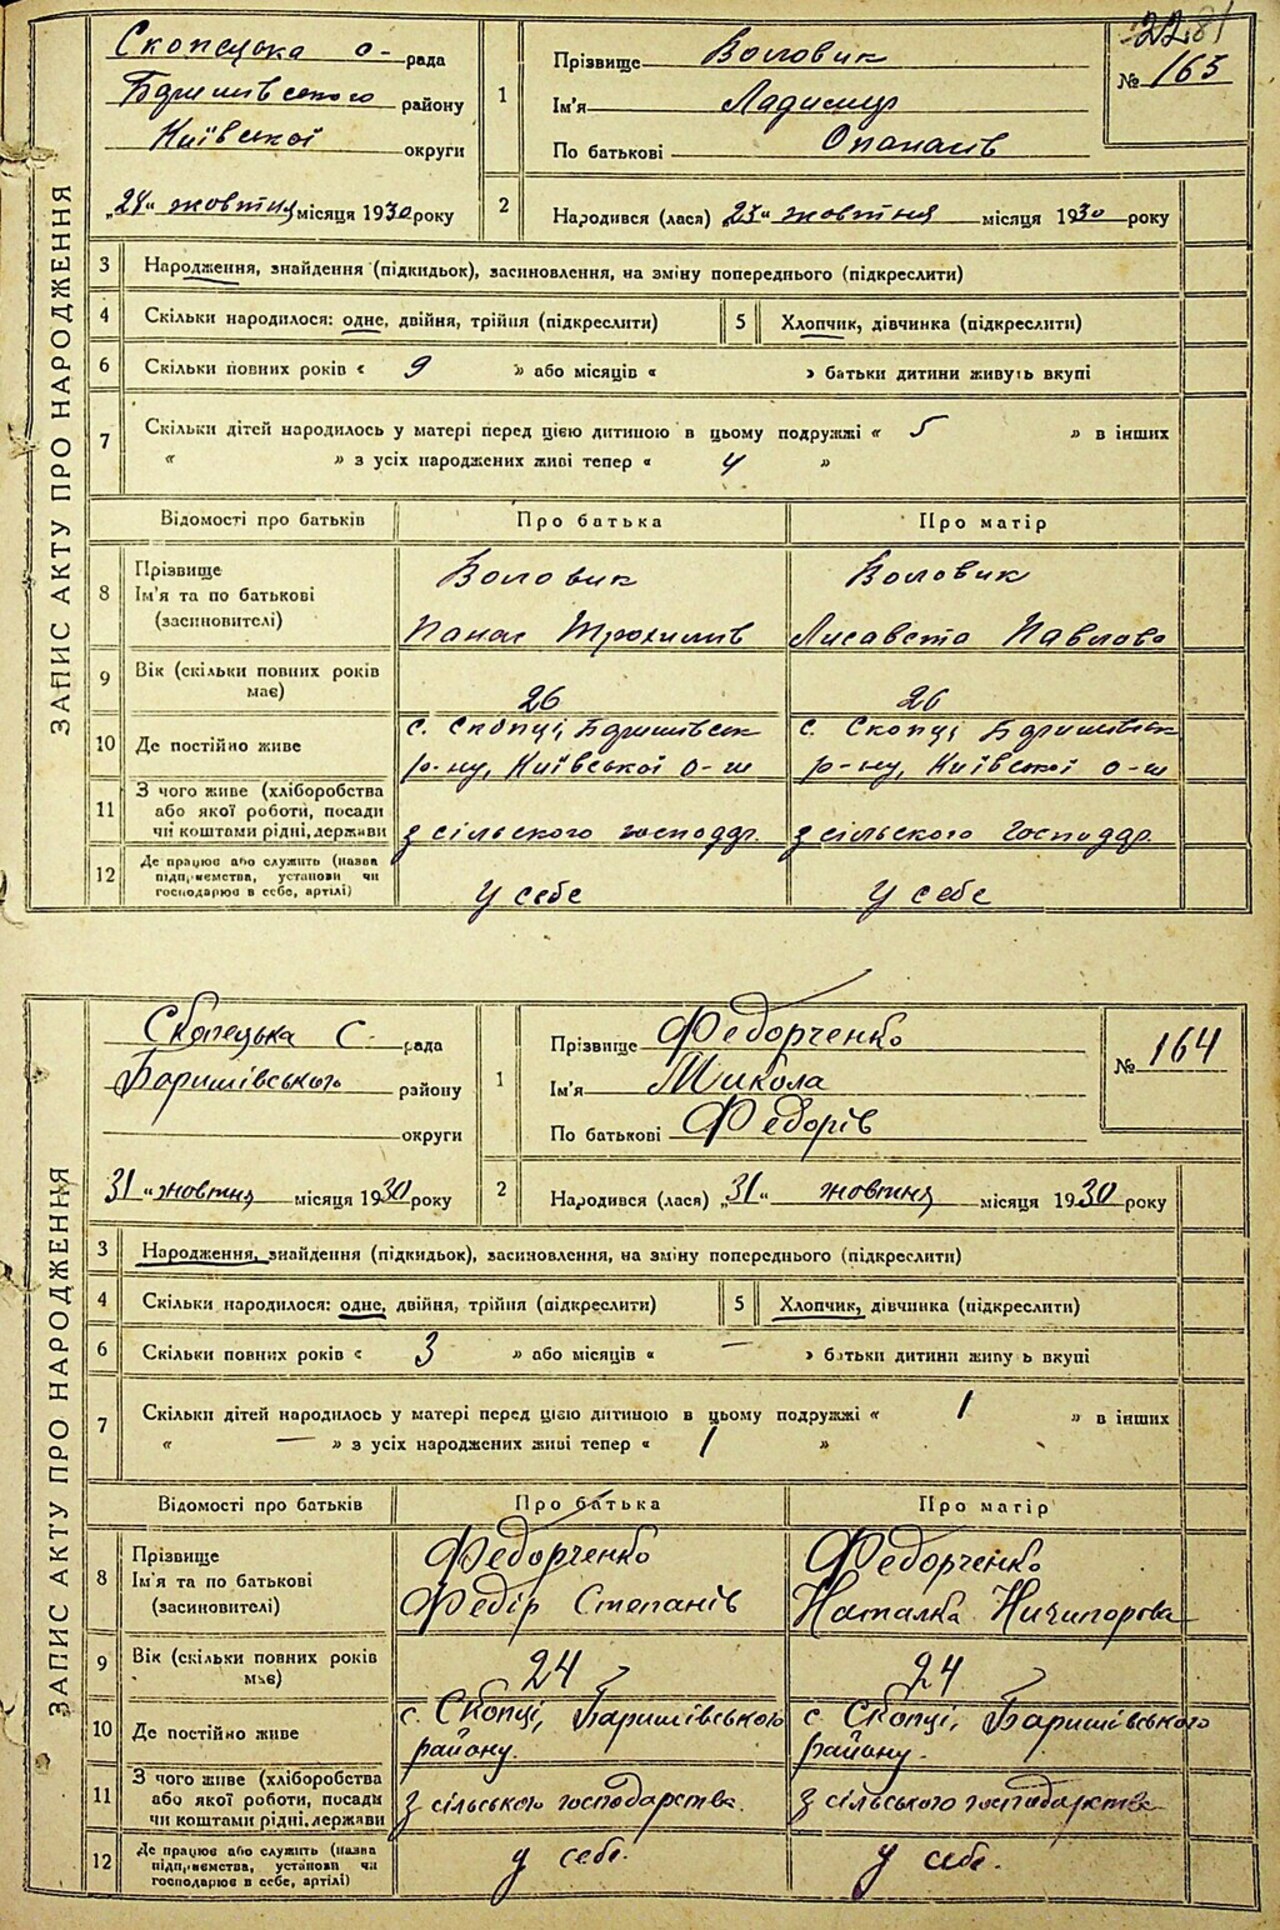 22 81
Скопецька с- рада
Баришівського району
Київської округи
„24“ жовтня місяця 1930 року
1
Прізвище Воловик
Ім'я
По батькові Опанасів
№ 163
2
Народився (лася) „23“ жовтня місяця 1930 року
ЗАПИС АКТУ ПРО НАРОДЖЕННЯ
3 Народження, знайдення (підкидьок), засиновлення, на зміну попереднього (підкреслити)
4 Скільки народилося: одне, двійня, трійня (підкреслити)
5 Хлопчик, дівчинка (підкреслити)
6 Скільки повних років « 9 » або місяців « » батьки дитини живуть вкупі
7 Скільки дітей народилось у матері перед цією дитиною в цьому подружжі « 5 » в інших
« » з усіх народжених живі тепер « 4 »
Відомості про батьків Про батька Про матір
8 Прізвище
Ім'я та по батькові
(засиновителі)
Воловик
Панас
Воловик
Лисавета Павлова
9 Вік (скільки повних років
має)
26
26
10 Де постійно живе
с. Скопці, Баришівськ
р-ну, Київської о-ги
с. Скопці, Баришівськ
р-ну, Київської о-ги
11 З чого живе (хліборобства
або якої роботи, посади
чи коштами рідні, держави
з сільського господар.
з сільського господар.
12 Де працює або служить (назва
підприємства, установи чи
господарює в себе, артілі)
у себе
у себе
Скопецька С. рада
Баришівського району
округи
31 “ жовтня місяця 1930 року
1
Прізвище Федорченко
Ім'я Микола
По батькові Федорів
№ 164
2
Народився (лася) „31“ жовтня місяця 1930 року
ЗАПИС АКТУ ПРО НАРОДЖЕННЯ
3 Народження, знайдення (підкидьок), засиновлення, на зміну попереднього (підкреслити)
4 Скільки народилося: одне, двійня, трійня (підкреслити)
5 Хлопчик, дівчинка (підкреслити)
6 Скільки повних років « 3 » або місяців « — » батьки дитини живуть вкупі
7 Скільки дітей народилось у матері перед цією дитиною в цьому подружжі « 1 » в інших
« — » з усіх народжених живі тепер « 1 »
Відомості про батьків Про батька Про матір
8 Прізвище
Ім'я та по батькові
(засиновителі)
Федорченко
Федір Степанів
Федорченко
Наталка Ничипорова
9 Вік (скільки повних років
має)
24
24
10 Де постійно живе
с. Скопці, Баришівського
району.
с. Скопці, Баришівського
району.
11 З чого живе (хліборобства
або якої роботи, посади
чи коштами рідні, держави
з сільського господарства.
з сільського господарства
12 Де працює або служить (назва
підприємства, установи чи
господарює в себе, артілі)
у себе.
у себе.